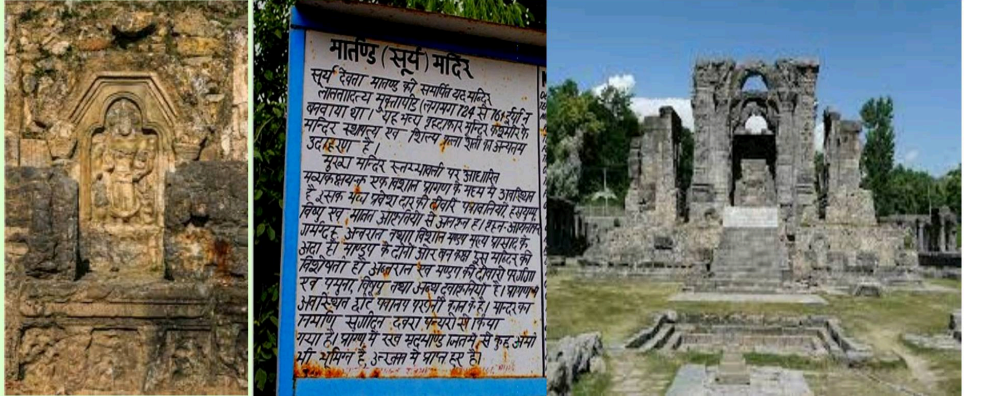 मार्तण्ड (सूर्य) मंदिर
सूर्य देवता मार्तण्ड को समर्पित यह मंदिर
ललितादित्य मुक्तापीड़ (लगभग 724 से 761 ई०) ने
बनवाया था। यह भव्य वृहदाकार मन्दिर कश्मीर के
मन्दिर स्थापत्य एवं शिल्प कला शैली का अन्यतम
उदाहरण है।
मुख्य मन्दिर स्तम्भावली पर आधारित
एक विशाल प्रांगण के मध्य में अवस्थित
है इसके भव्य प्रवेश द्वार की दीवारें
विष्णु एवं मानव आकृतियों से अलंकृत है।
अन्तराल तथा विशाल मण्डप मुख्य प्रासाद के
अंग है। मण्डप के दोनों ओर बने कक्ष इस मन्दिर की
विशेषता है। अन्तराल एवं मण्डप की दीवारों पर गंगा
एवं यमुना विष्णु तथा अन्य देवाकृतियां है। प्रांगण में
अवस्थित छोटे देवालय परवर्ती काल के है। मन्दिर का
निर्माण सुगठित पत्थरों से किया
गया है। प्रांगण में रखे मृदभाण्ड जिनमें से कुछ अभी
भी भूमिगत है, उत्खनन में प्राप्त हुए है।